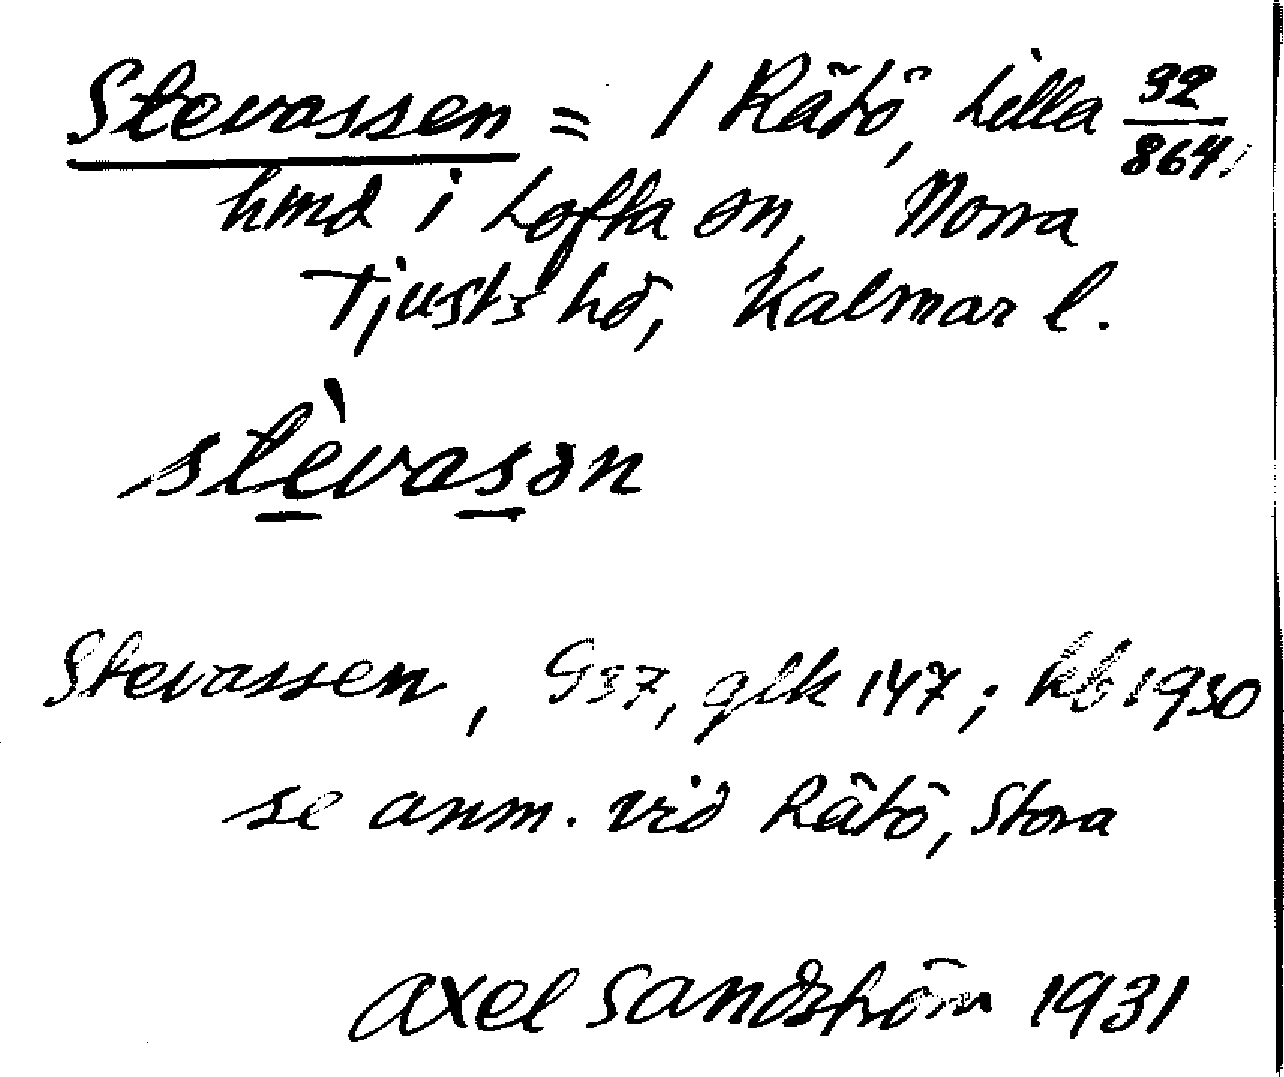 Stevassen = 1 Rätö, Lilla 32/864
hmd i Lofta sn, Norra
Tjusts hd, Kalmar l.
stèvasən
Stevassen, G37, glk 147; kb 1930
se anm. vid Rätö, Stora
Axel Sandström 1931